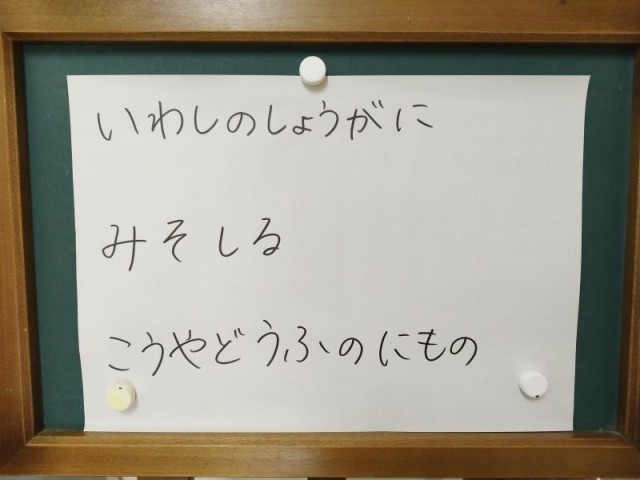 いわしのしょうがに
みそしる
こうやどうふのにもの